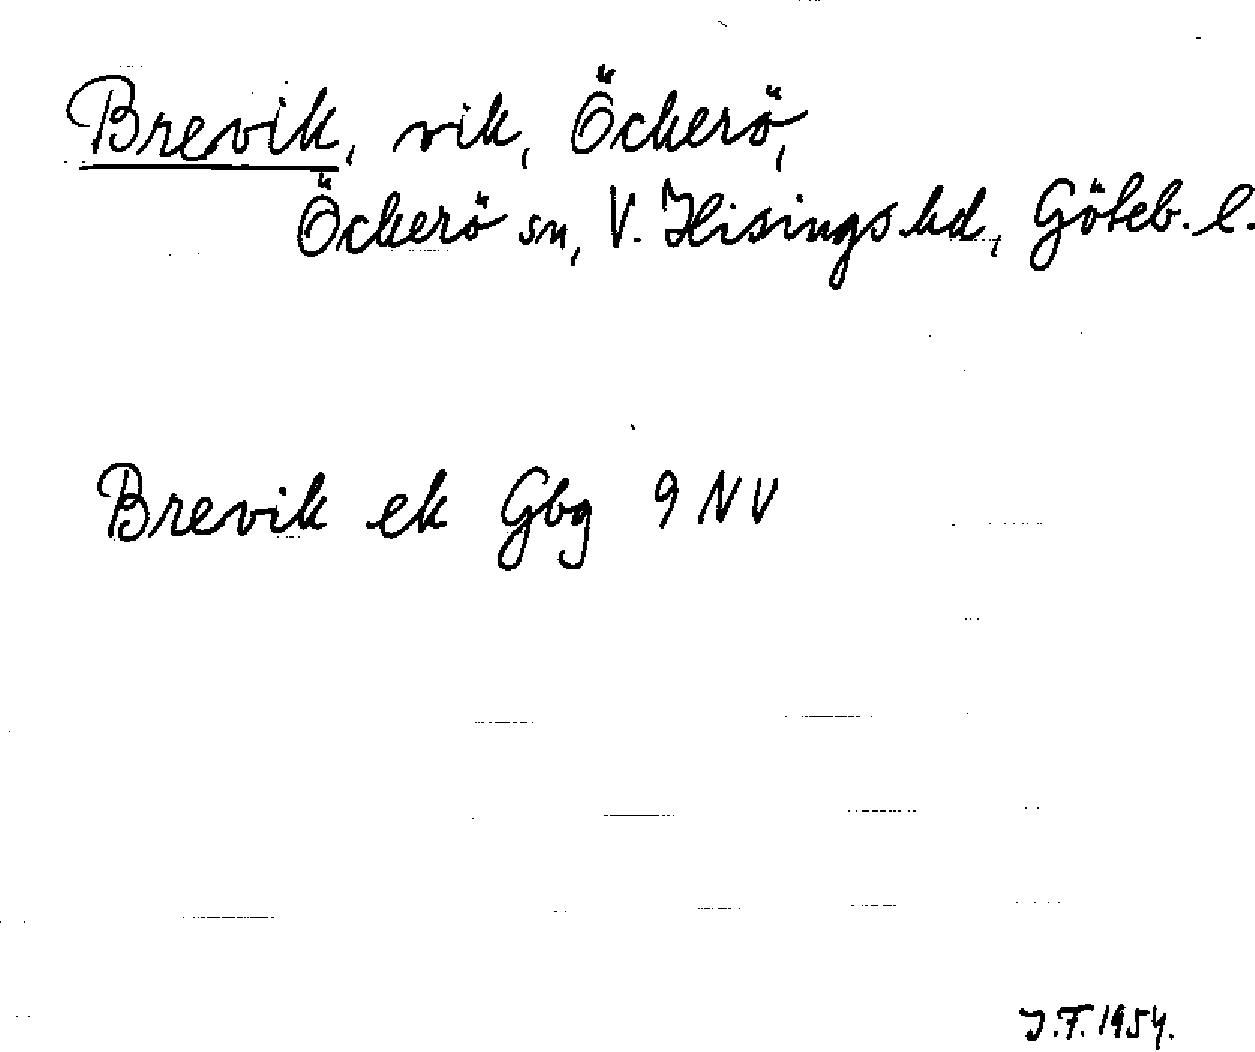 Brevik, vik, Öckerö,
Öckerö sn, V. Hisings hd, Göteb. l.
Brevik ek Gbg 9 NV
J.F. 1954.